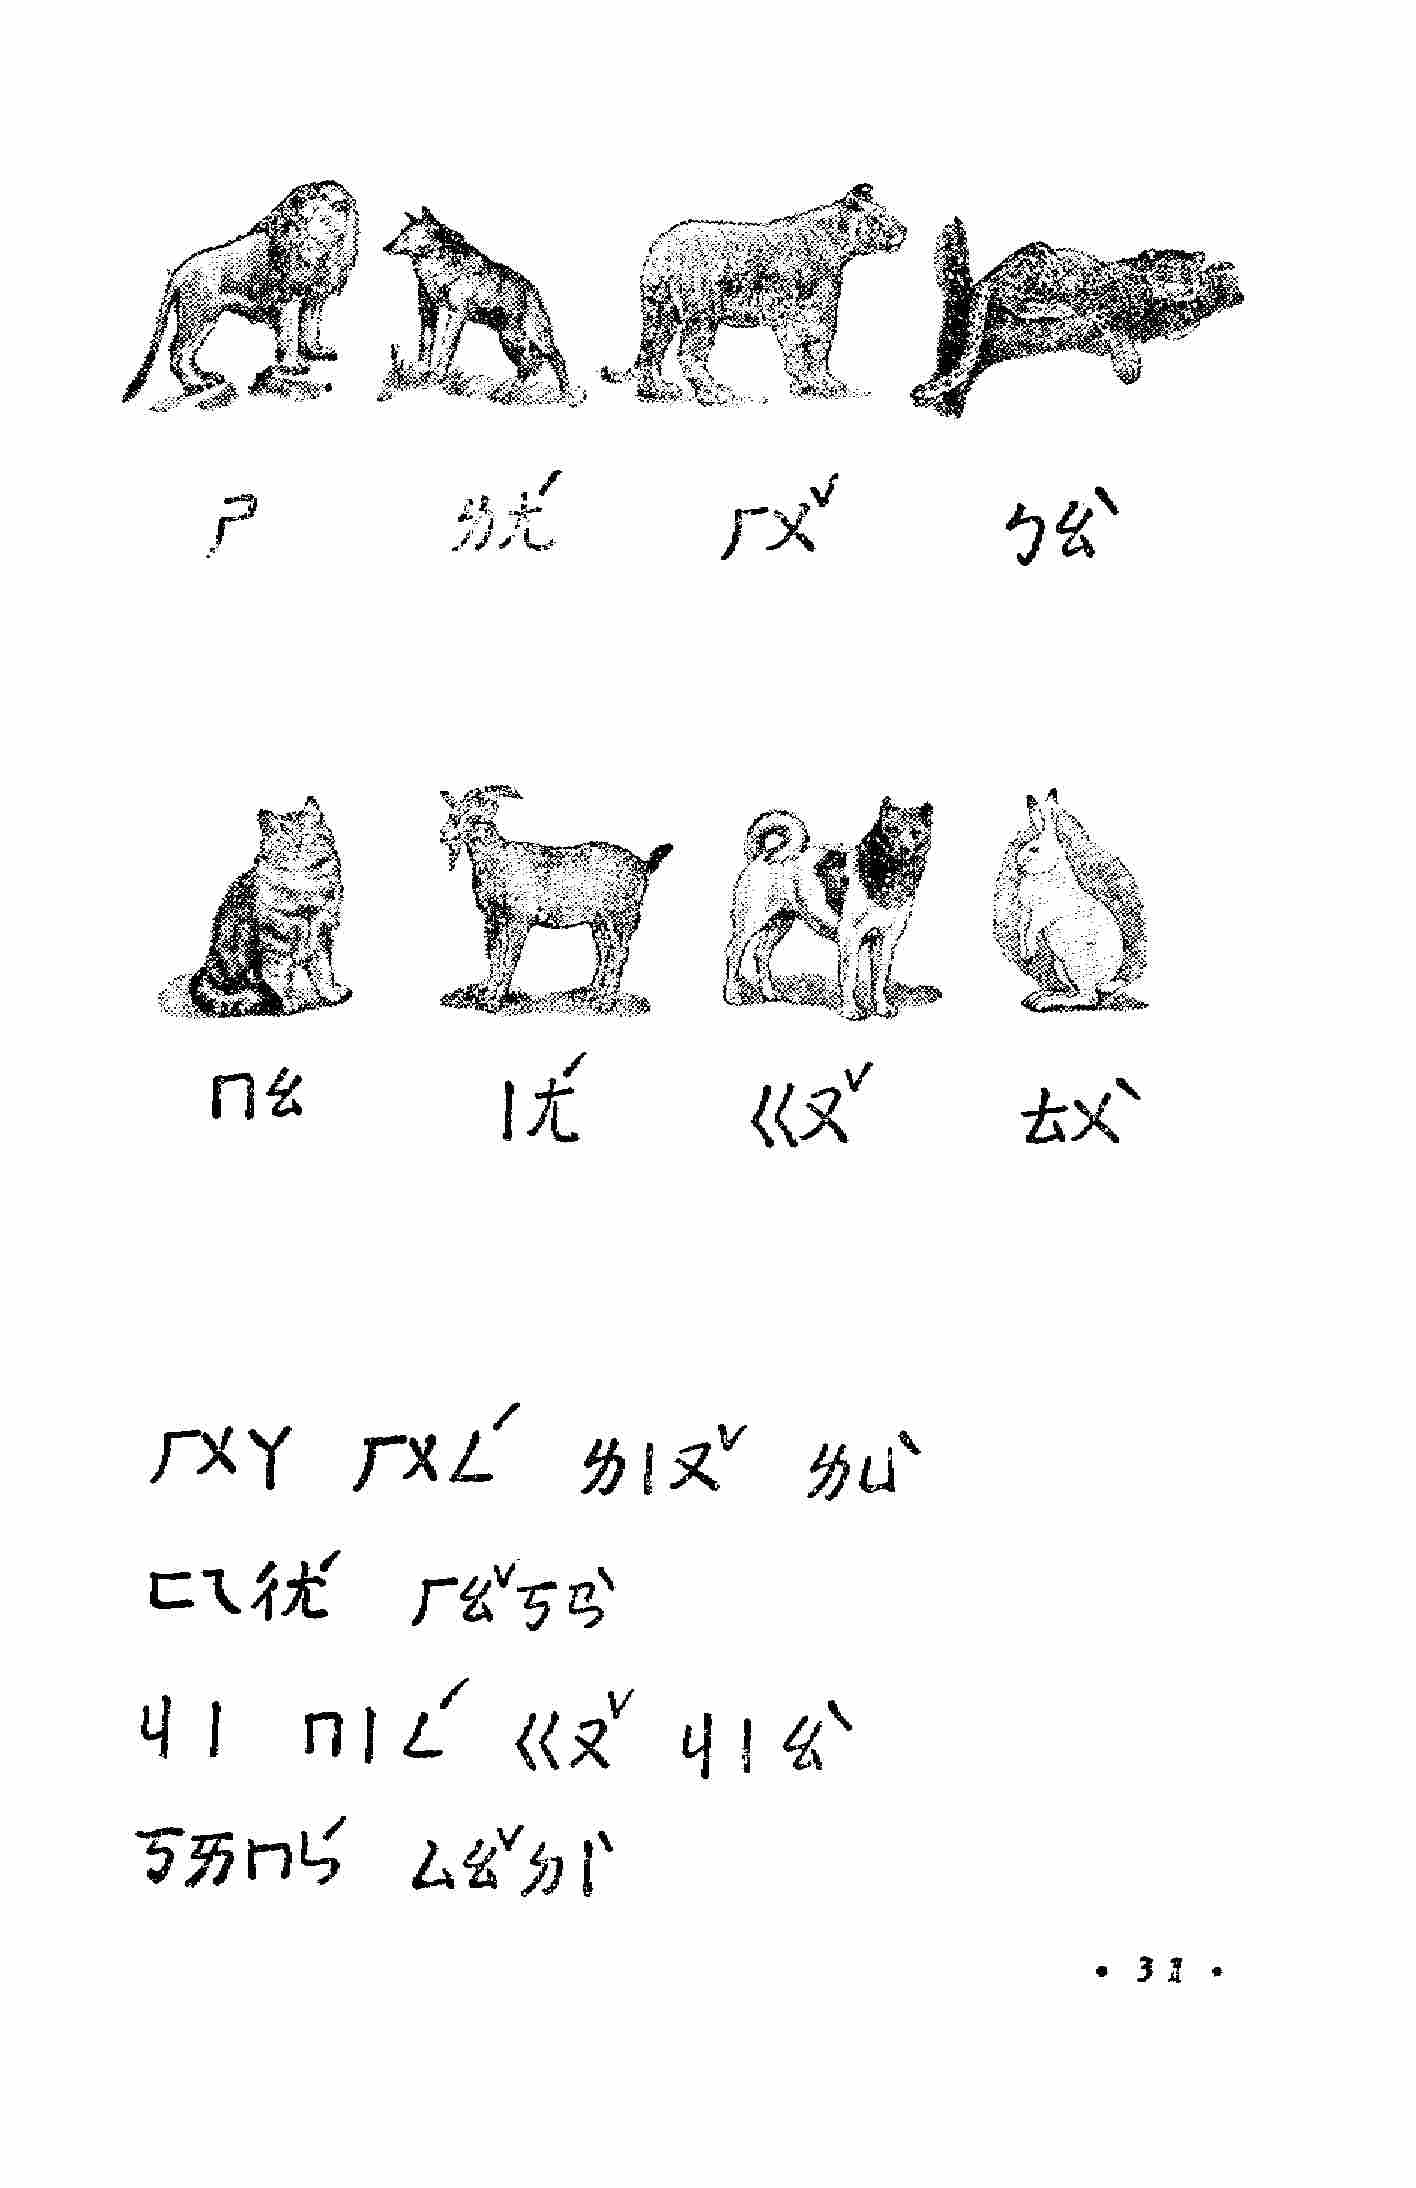 ㄕ ㄌㄤˊ ㄏㄨˇ ㄅㄠˋ
ㄇㄠ ㄧㄤˊ ㄍㄡˇ ㄊㄨˋ
ㄏㄨㄚ ㄏㄨㄥˊ ㄌㄧㄡˇ ㄌㄩˋ
ㄈㄟㄔㄤˊ ㄏㄠˇㄎㄢˋ
ㄐㄧ ㄇㄧㄥˊ ㄍㄡˇ ㄐㄧㄠˋ
ㄎㄞㄇㄣˊ ㄙㄠˇㄉㄧˋ
· 31 ·